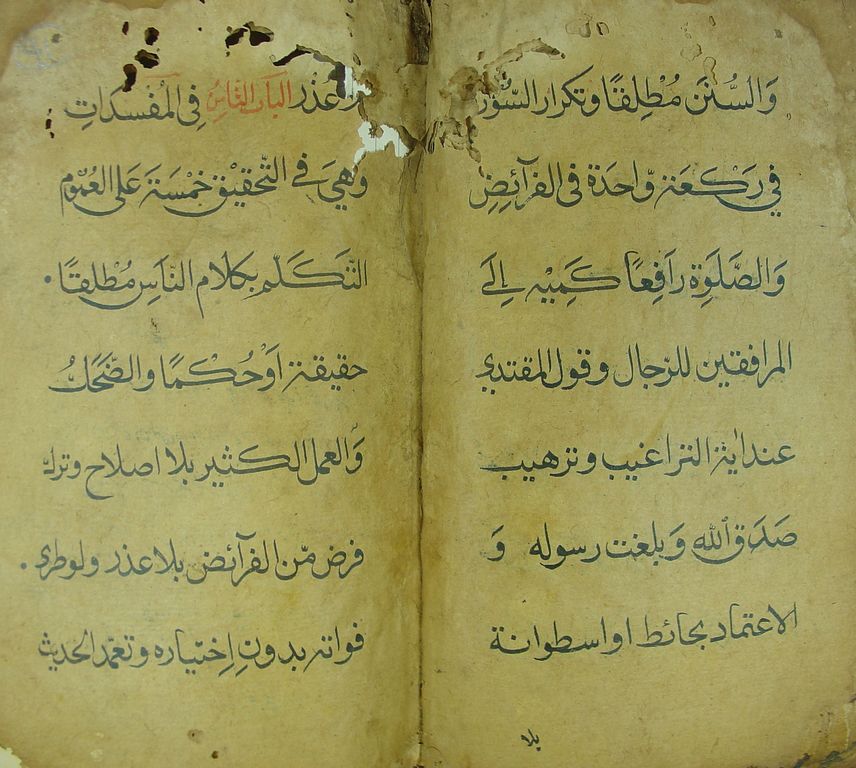 وَالسُّنَنِ مُطْلَقًا وَتَكرار السُّوَر
فِي رَكْعَةٍ وَّاحِدَةٍ فى الفَرآئِضِ
وَالصَّلَوةِ رَافِعًا كَمِيْهِ اِلَى
المرافقين للرّجال وقول المقتدي
عند اية التراغيب وترهيب
صَدَقَ ٱللّٰه وَبلغت رسوله وَ
الاعتماد بحائط او اسطوانة
بلا
عُذْر الباب الثَّامِنُ فِى المُفْسِدَاتِ
وَهِيَ فِي التَّحْقِيْقِ خَمْسَةٌ عَلَى العُمُوم
التَّكَلّم بِكَلَام النَّاسِ مُطْلَقًا.
حقيقةً اَوْحُكْمًا والضَّحَكُ
وَالعمل الكثير بلا اصلاح وترك
فرض مّن الفرآئض بلاعذر ولوطرى.
فواته بدونِ اِختياره وتعمّد الحديث